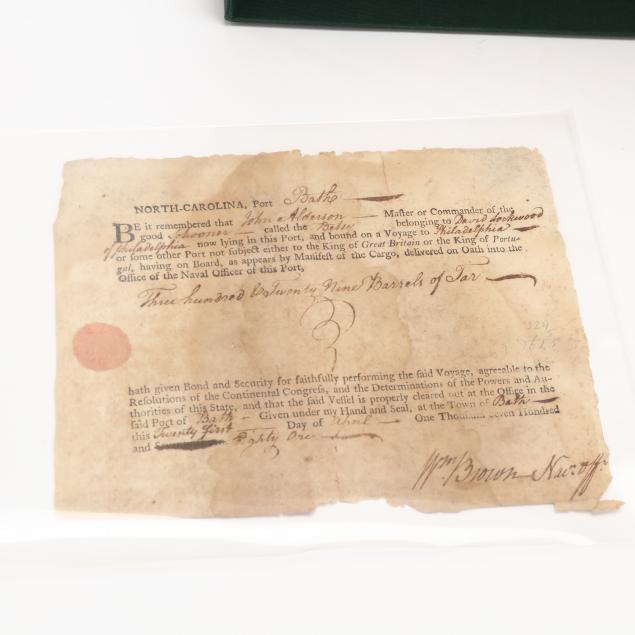 NORTH-CAROLINA, Port Bath
BE it remembered that John Alderson Master or Commander of the
good Schooner called the Betsey belonging to David Lockwood
of Philadelphia now lying in this Port, and bound on a Voyage to Philadelphia
or some other Port not subject either to the King of Great Britain or the King of Portu-
gal, having on Board, as appears by Manifest of the Cargo, delivered on Oath into the
Office of the Naval Officer of this Port,
Three hundred & Twenty Nine Barrels of Tar
329
hath given Bond and Security for faithfully performing the said Voyage, agreeable to the
Resolutions of the Continental Congress, and the Determinations of the Powers and Au-
thorities of this State, and that the said Vessel is properly cleared out at the Office in the
said Port of Bath Given under my Hand and Seal, at the Town of Bath
this Twenty first Day of April One Thousand Seven Hundred
and Eighty One
Wm Brown Nav. Offr